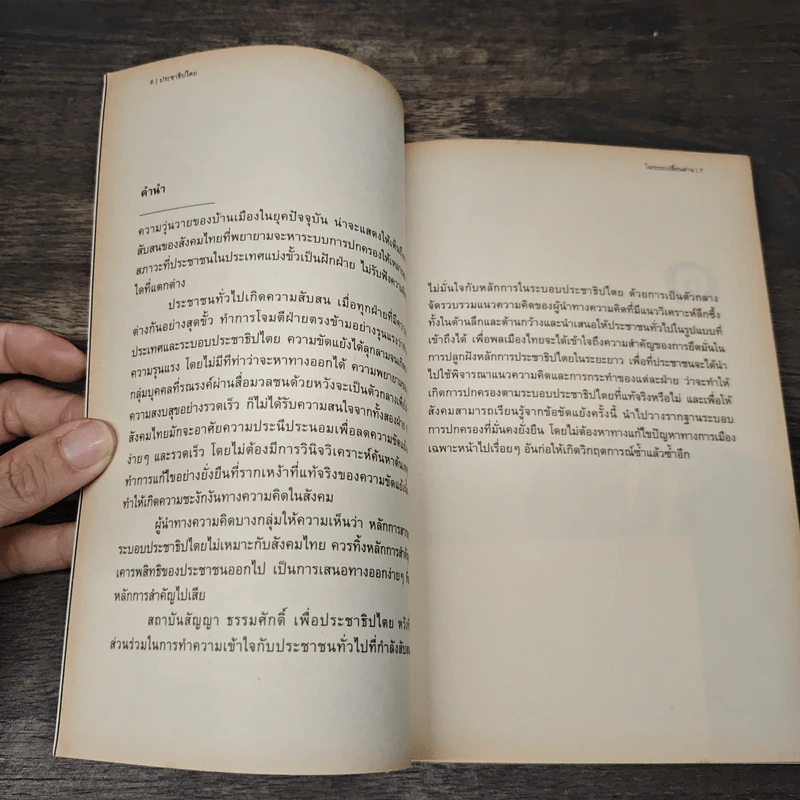 ๕ | ประชาธิปไตย
คำนำ
ความวุ่นวายของบ้านเมืองในยุคปัจจุบัน น่าจะแสดงให้เห็นถึง
สับสนของสังคมไทยที่พยายามจะหาระบบการปกครองให้เหมาะ
สภาวะที่ประชาชนในประเทศแบ่งขั้วเป็นฝักฝ่าย ไม่รับฟังความ
ใดที่แตกต่าง
ประชาชนทั่วไปเกิดความสับสน เมื่อทุกฝ่ายที่มี
ต่างกันอย่างสุดขั้ว ทำการโจมตีฝ่ายตรงข้ามอย่างรุนแรงว่า
ประเทศและระบอบประชาธิปไตย ความขัดแย้งได้ลุกลามจนเกิด
ความรุนแรง โดยไม่มีทีท่าว่าจะหาทางออกได้ ความพยายามของ
กลุ่มบุคคลที่รณรงค์ผ่านสื่อมวลชนด้วยหวังจะเป็นตัวกลางเพื่อ
ความสงบสุขอย่างรวดเร็ว ก็ไม่ได้รับความสนใจจากทั้งสองฝ่าย
สังคมไทยมักจะอาศัยความประนีประนอมเพื่อลดความขัดแย้ง
ง่ายๆ และรวดเร็ว โดยไม่ต้องมีการวินิจวิเคราะห์ค้นหาต้นเหตุ
ทำการแก้ไขอย่างยั่งยืนที่รากเหง้าที่แท้จริงของความขัดแย้ง
ทำให้เกิดความชะงักงันทางความคิดในสังคม
ผู้นำทางความคิดบางกลุ่มให้ความเห็นว่า หลักการ
ระบอบประชาธิปไตยไม่เหมาะกับสังคมไทย ควรทิ้งหลักการสำคัญ
เคารพสิทธิของประชาชนออกไป เป็นการเสนอทางออกง่ายๆ ที่
หลักการสำคัญไปเสีย
สถาบันสัญญา ธรรมศักดิ์ เพื่อประชาธิปไตย หวัง
ส่วนร่วมในการทำความเข้าใจกับประชาชนทั่วไปที่กำลังสับสน
ในกระแสเปลี่ยนผ่าน | ๗
ไม่มั่นใจกับหลักการในระบอบประชาธิปไตย ด้วยการเป็นตัวกลาง
จัดรวบรวมแนวความคิดของผู้นำทางความคิดที่มีแนววิเคราะห์ลึกซึ้ง
ทั้งในด้านลึกและด้านกว้างและนำเสนอให้ประชาชนทั่วไปในรูปแบบที่
เข้าถึงได้ เพื่อพลเมืองไทยจะได้เข้าใจถึงความสำคัญของการยึดมั่นใน
การปลูกฝังหลักการประชาธิปไตยในระยะยาว เพื่อที่ประชาชนจะได้นำ
ไปใช้พิจารณาแนวความคิดและการกระทำของแต่ละฝ่าย ว่าจะทำให้
เกิดการปกครองตามระบอบประชาธิปไตยที่แท้จริงหรือไม่ และเพื่อให้
สังคมสามารถเรียนรู้จากข้อขัดแย้งครั้งนี้ นำไปวางรากฐานระบอบ
การปกครองที่มั่นคงยั่งยืน โดยไม่ต้องหาทางแก้ไขปัญหาทางการเมือง
เฉพาะหน้าไปเรื่อยๆ อันก่อให้เกิดวิกฤตการณ์ซ้ำแล้วซ้ำอีก